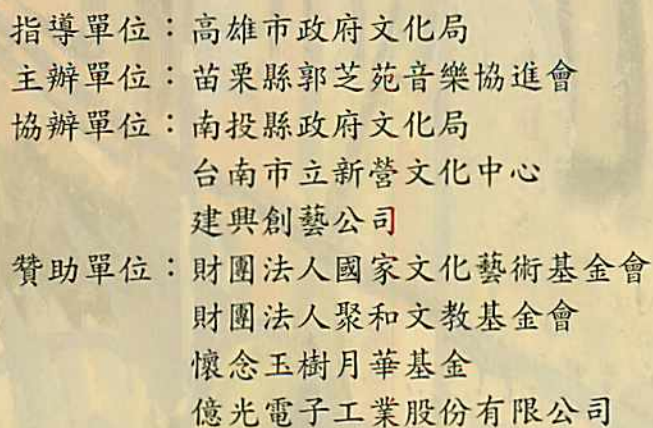 指導單位：高雄市政府文化局
主辦單位：苗栗縣郭芝苑音樂協進會
協辦單位：南投縣政府文化局
台南市立新營文化中心
建興創藝公司
贊助單位：財團法人國家文化藝術基金會
財團法人聚和文教基金會
懷念玉樹月華基金
億光電子工業股份有限公司